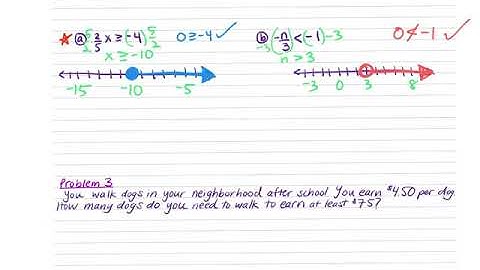 ★ ⓐ 5/2 2/5 x ≥ (-4) 5/2 0 ≥ -4 ✓
x ≥ -10
-15 -10 -5
ⓑ -3 (-n/3) < (-1) -3 0 ≮ -1 ✓
n > 3
-3 0 3 8
Problem 3
You walk dogs in your neighborhood after school. You earn $4.50 per dog.
How many dogs do you need to walk to earn at least $75?